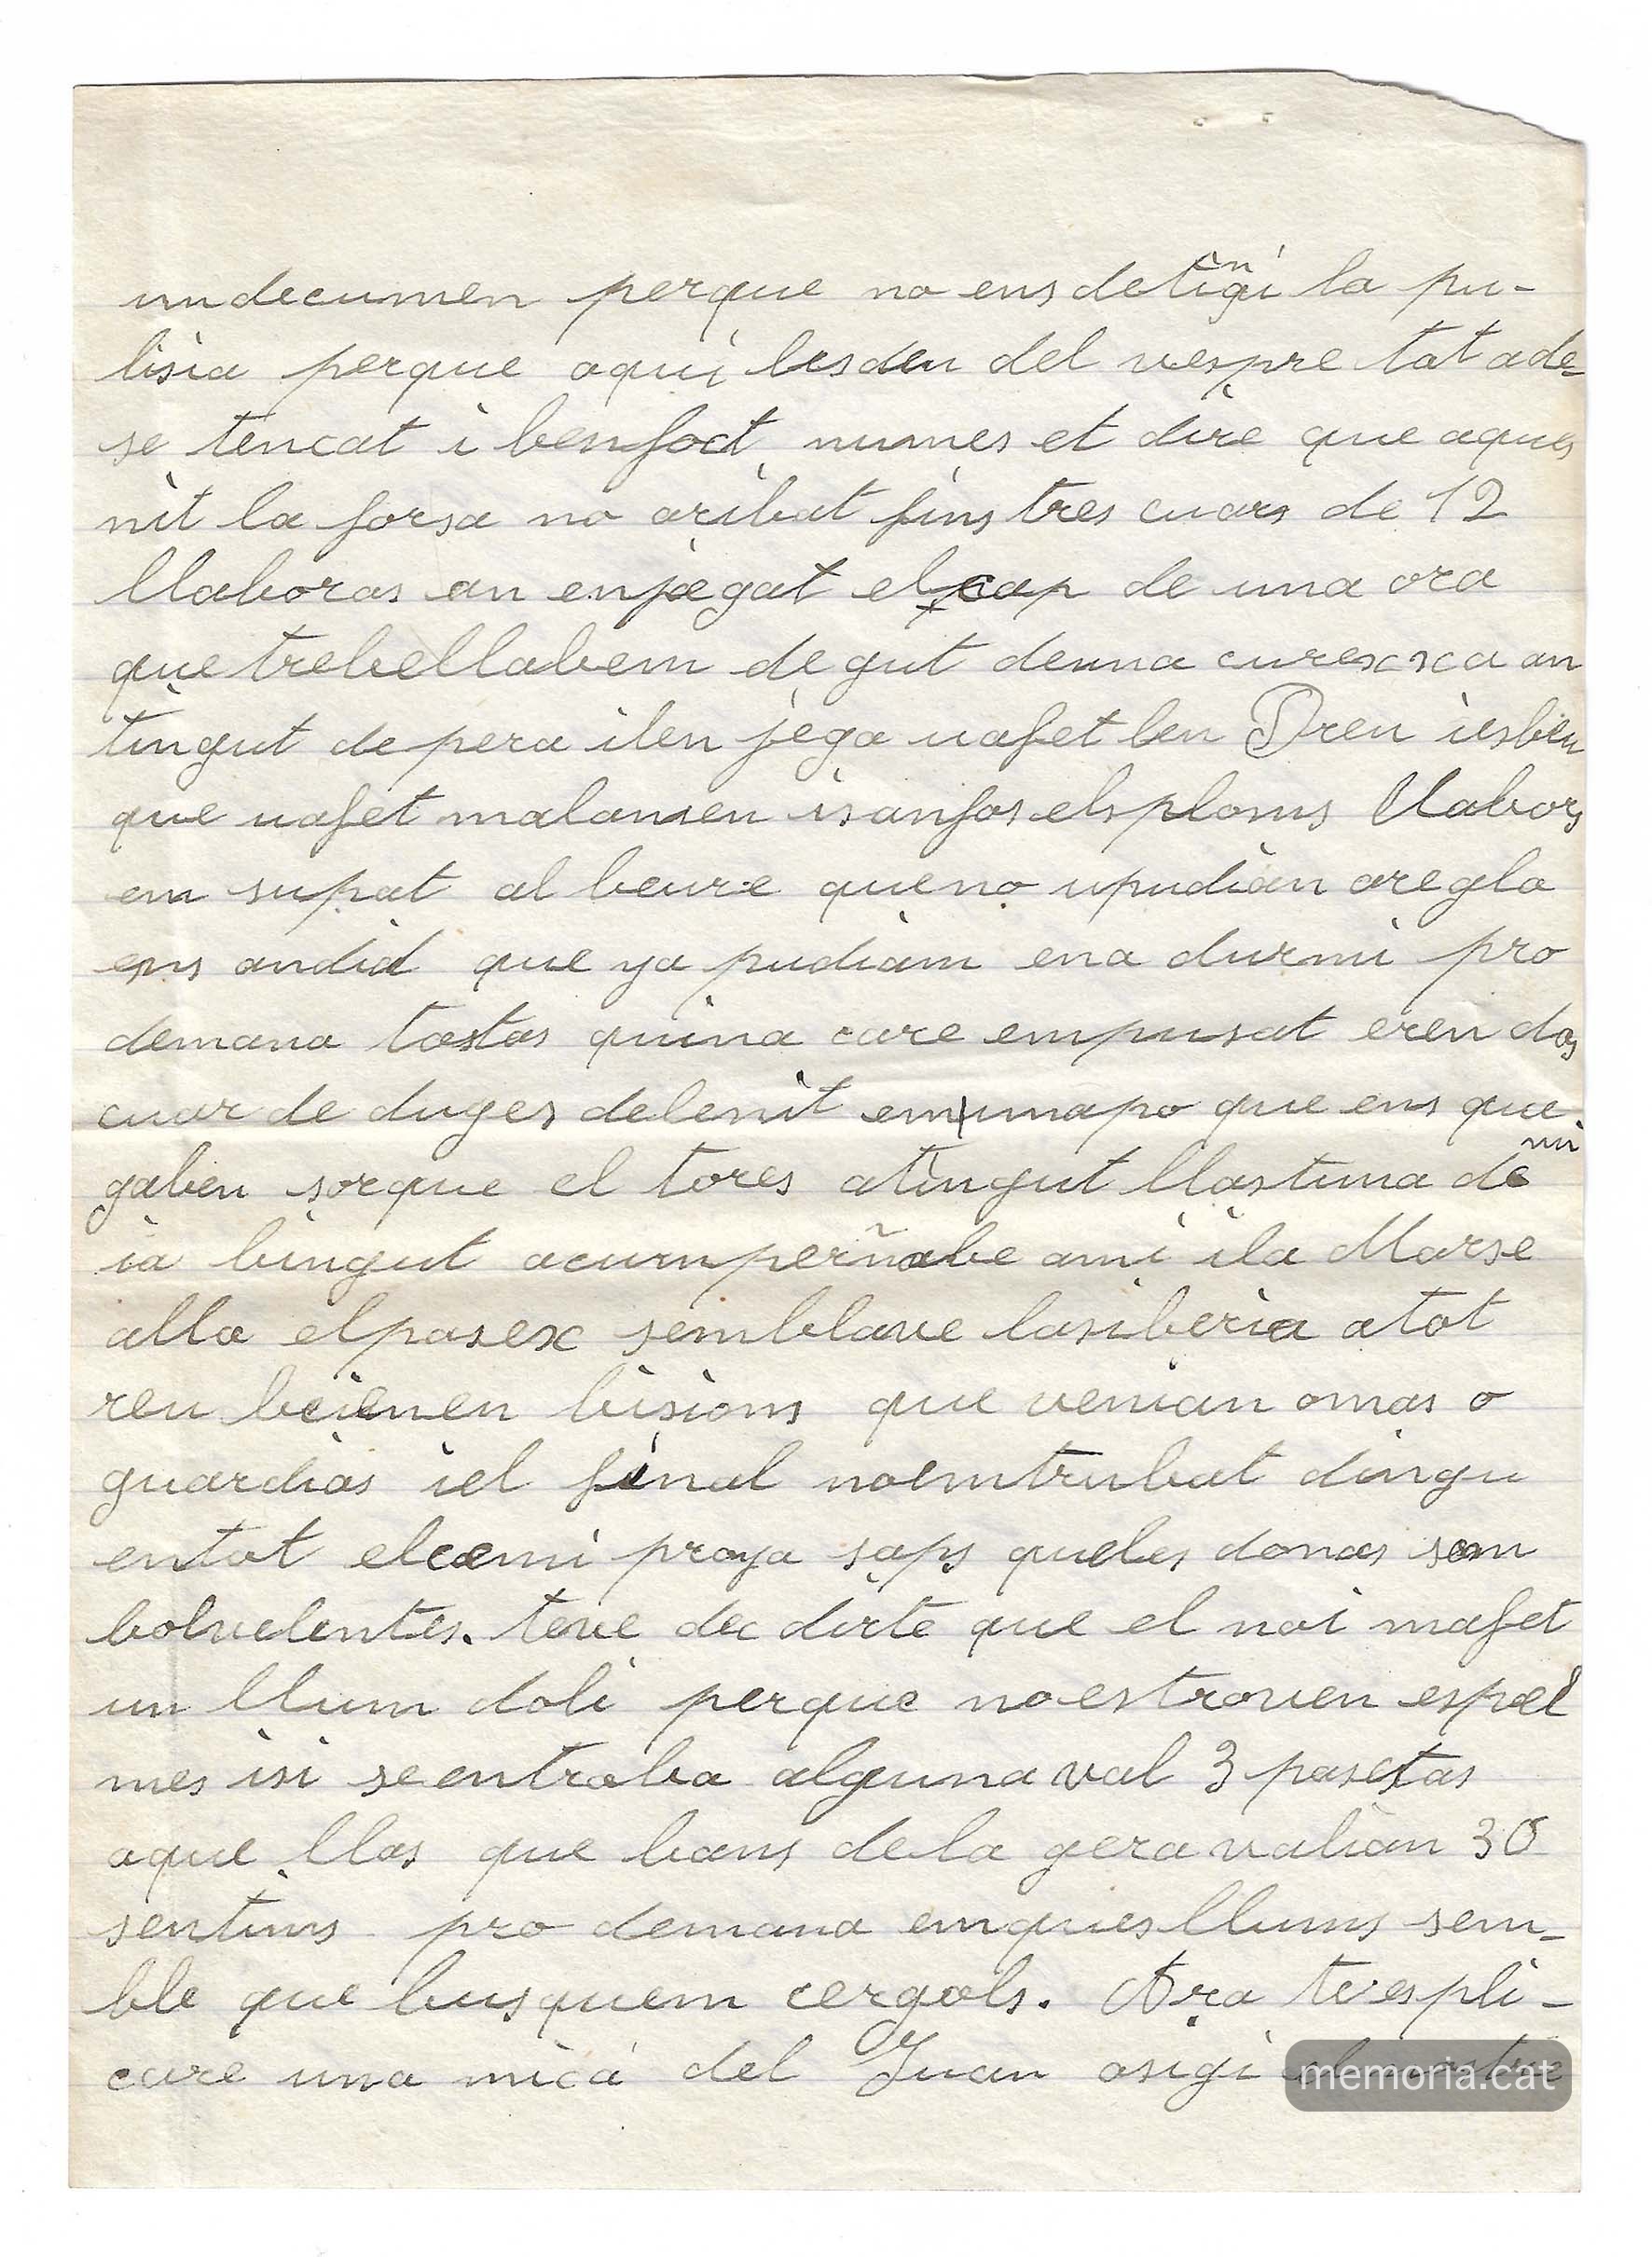 un decumen perque no ens detingi la pu-
lisia perque aqui les deu del vespre tot a de-
se tencat i ben foct numes et dire que aques
nit la forsa no aribat fins tres cuars de 12
llaboras an enjegat el cap de una ora
que trebellabem degut de una curexxa an
tingut de pera i len jega ua fet ben Dreu i es beu
que ua fet malamen i s an fos els ploms llabors
em supat al beure que no u pudian aregla
ens an did que ya pudiam ena durmi pro
demana tastas quina care em pusat eren dos
cuar de duges de le nit em una po que ens que
gaben sorque el tores a tingut llastima de mi
i a bingut acumperñabe a mi i la Marse
alla el pasex semblave la siberia a tot
reu beienen bisions que venian omas o
guardias i el final no em trubat dingu
en tot el cemi pro ya saps que les donas som
bolvelentes. teve dec dirte que el noi ma fet
un llum doli perque no es troven espel
mes i si se entroba alguna val 3 pasetas
aque llas que bans de la gera valian 30
sentims pro demana em ques llums sem-
ble que busquem cergols. Ara te espli-
care una mica del Juan osigi
memoria.cat